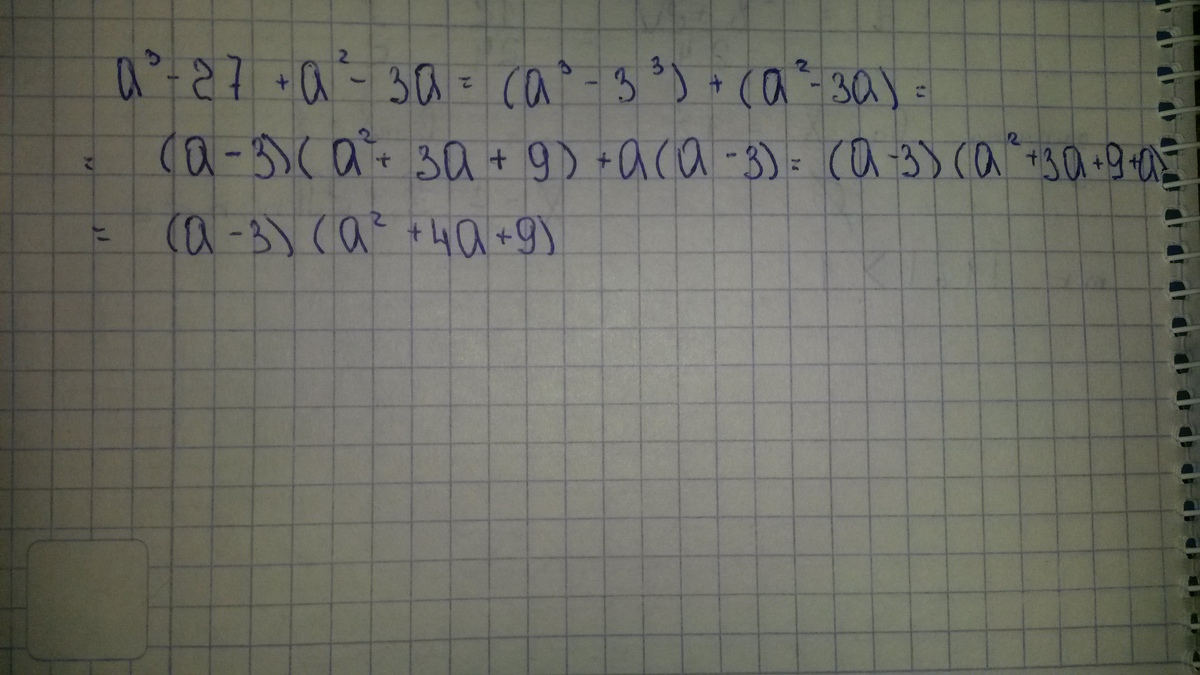 a³ - 27 + a² - 3a = (a³ - 3³) + (a² - 3a) =
= (a - 3)(a² + 3a + 9) + a(a - 3) = (a - 3)(a² + 3a + 9 + a)
= (a - 3)(a² + 4a + 9)